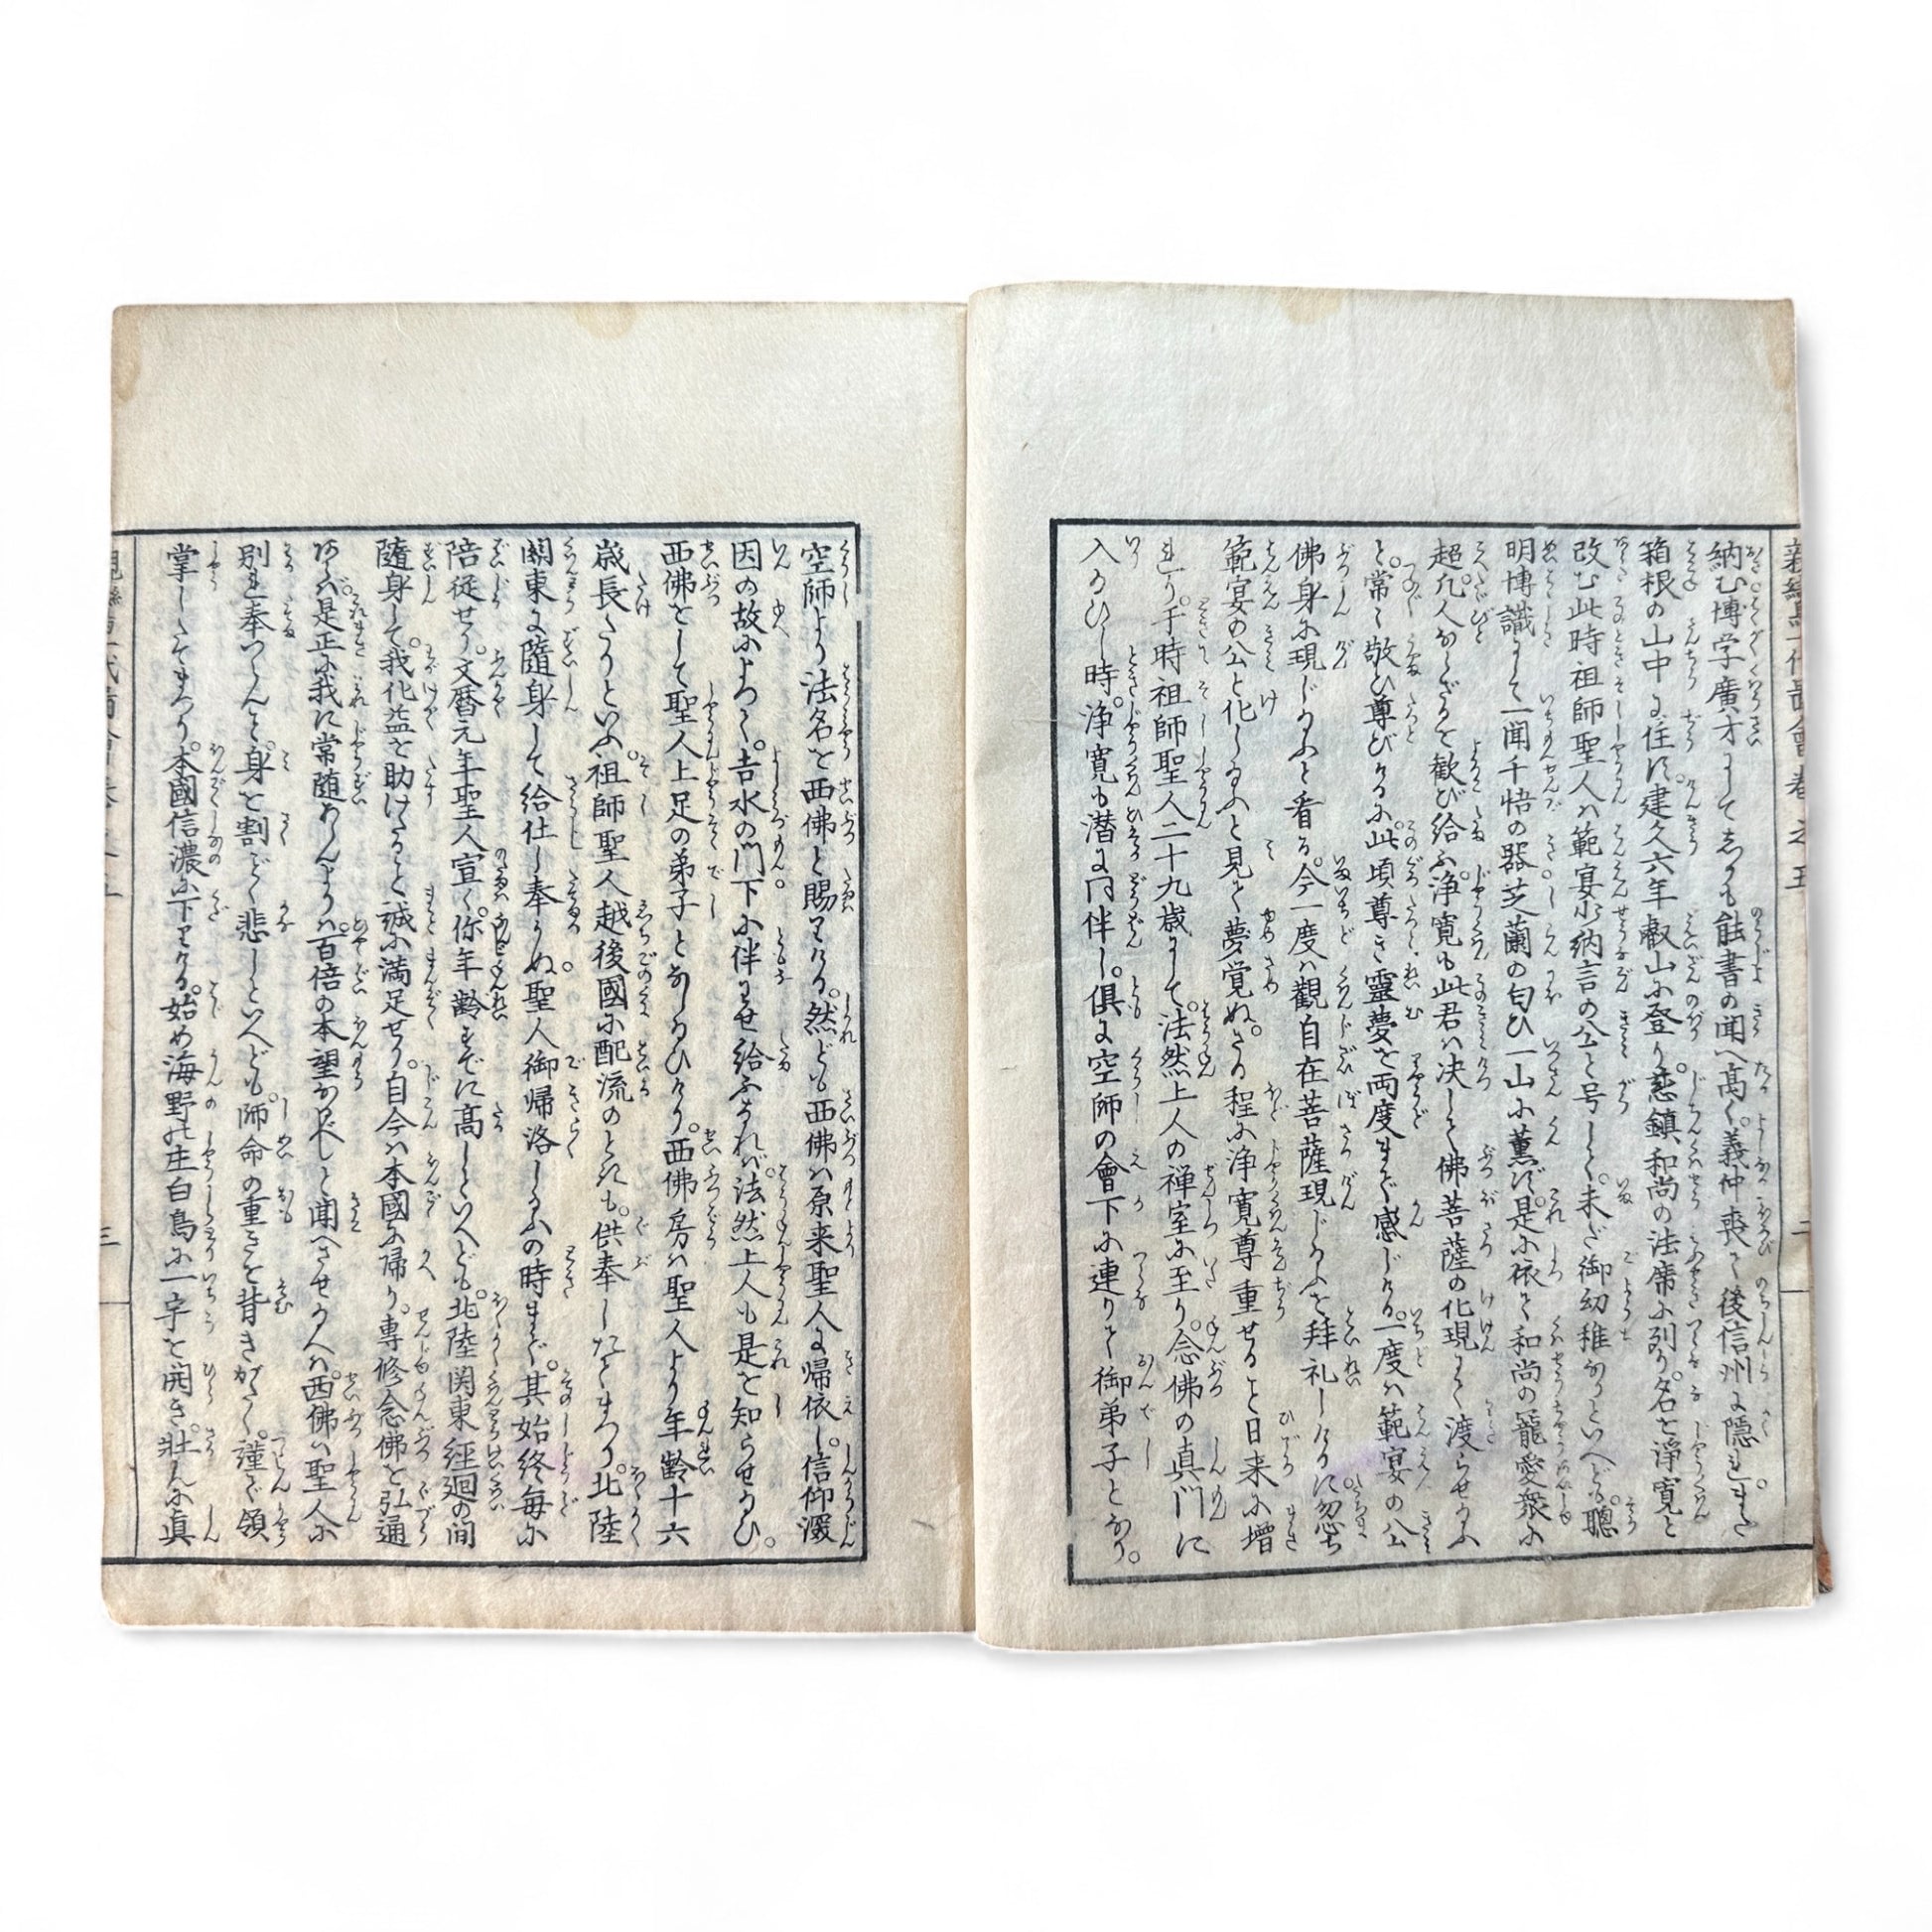 納む博学廣才にして志かも能書の聞へ高く。義仲喪て後信州に隠れ。また
箱根の山中に住に。建久六年叡山に登り。慈鎮和尚の法席に列り。名を淨寛と
改む此時祖師聖人ハ範宴少納言の公と号して。未だ御幼稚なりといへども。聰
明博識にして一聞千悟の器芝蘭の匂ひ一山に薫ず。是に依て和尚の寵愛衆に
超。凡人ならざるを歓び給ふ。淨寛も此君ハ决して佛菩薩の化現にて渡らせ給ふ
と。常に敬ひ尊びけるに。此頃尊き靈夢を両度まで感じける。一度ハ範宴の公
佛身に現じ給ふと看る。今一度ハ觀自在菩薩現じ給ふを拜礼しけるに忽ち
範宴の公と化し給ふと見て夢覚ぬ。さる程に淨寛尊重せること日来に増
れり。于時祖師聖人二十九歳にして。法然上人の禅室に至り。念佛の真門に
入給ひし時。淨寛も潜に同伴し。倶に空師の會下に連りて御弟子となり。
空師より法名を西佛と賜りける。然ども西佛ハ原来聖人に帰依し。信仰深
因の故によつて。吉水の門下に伴はせ給ふなれバ。法然上人も是を知らせ給ひ。
西佛をして聖人上足の弟子となし給ひけり。西佛房ハ聖人より年齢十六
歳長たりといふ。祖師聖人越後國に配流のときも。供奉したてまつり。北陸
關東に隨身して給仕し奉りぬ。聖人御帰洛し給ふの時まで。其始終毎に
陪従せり。文暦元年聖人宣く。你年齢すでに高しといへども。北陸関東経廻の間
隨身して。我化益を助けたること誠に満足せり。自今ハ本國に帰り。専修念佛を弘通
あらバ。是正に我に常随あらんよりハ。百倍の本望なるべしと聞へさせ給へハ。西佛ハ聖人に
別れ奉つらんこと。身を割ごとく悲しといへども。師命の重きを背きがたく。謹で領
掌したてまつり。本國信濃に下りける。始め海野の庄白鳥に一宇を開き。壮んに真
三